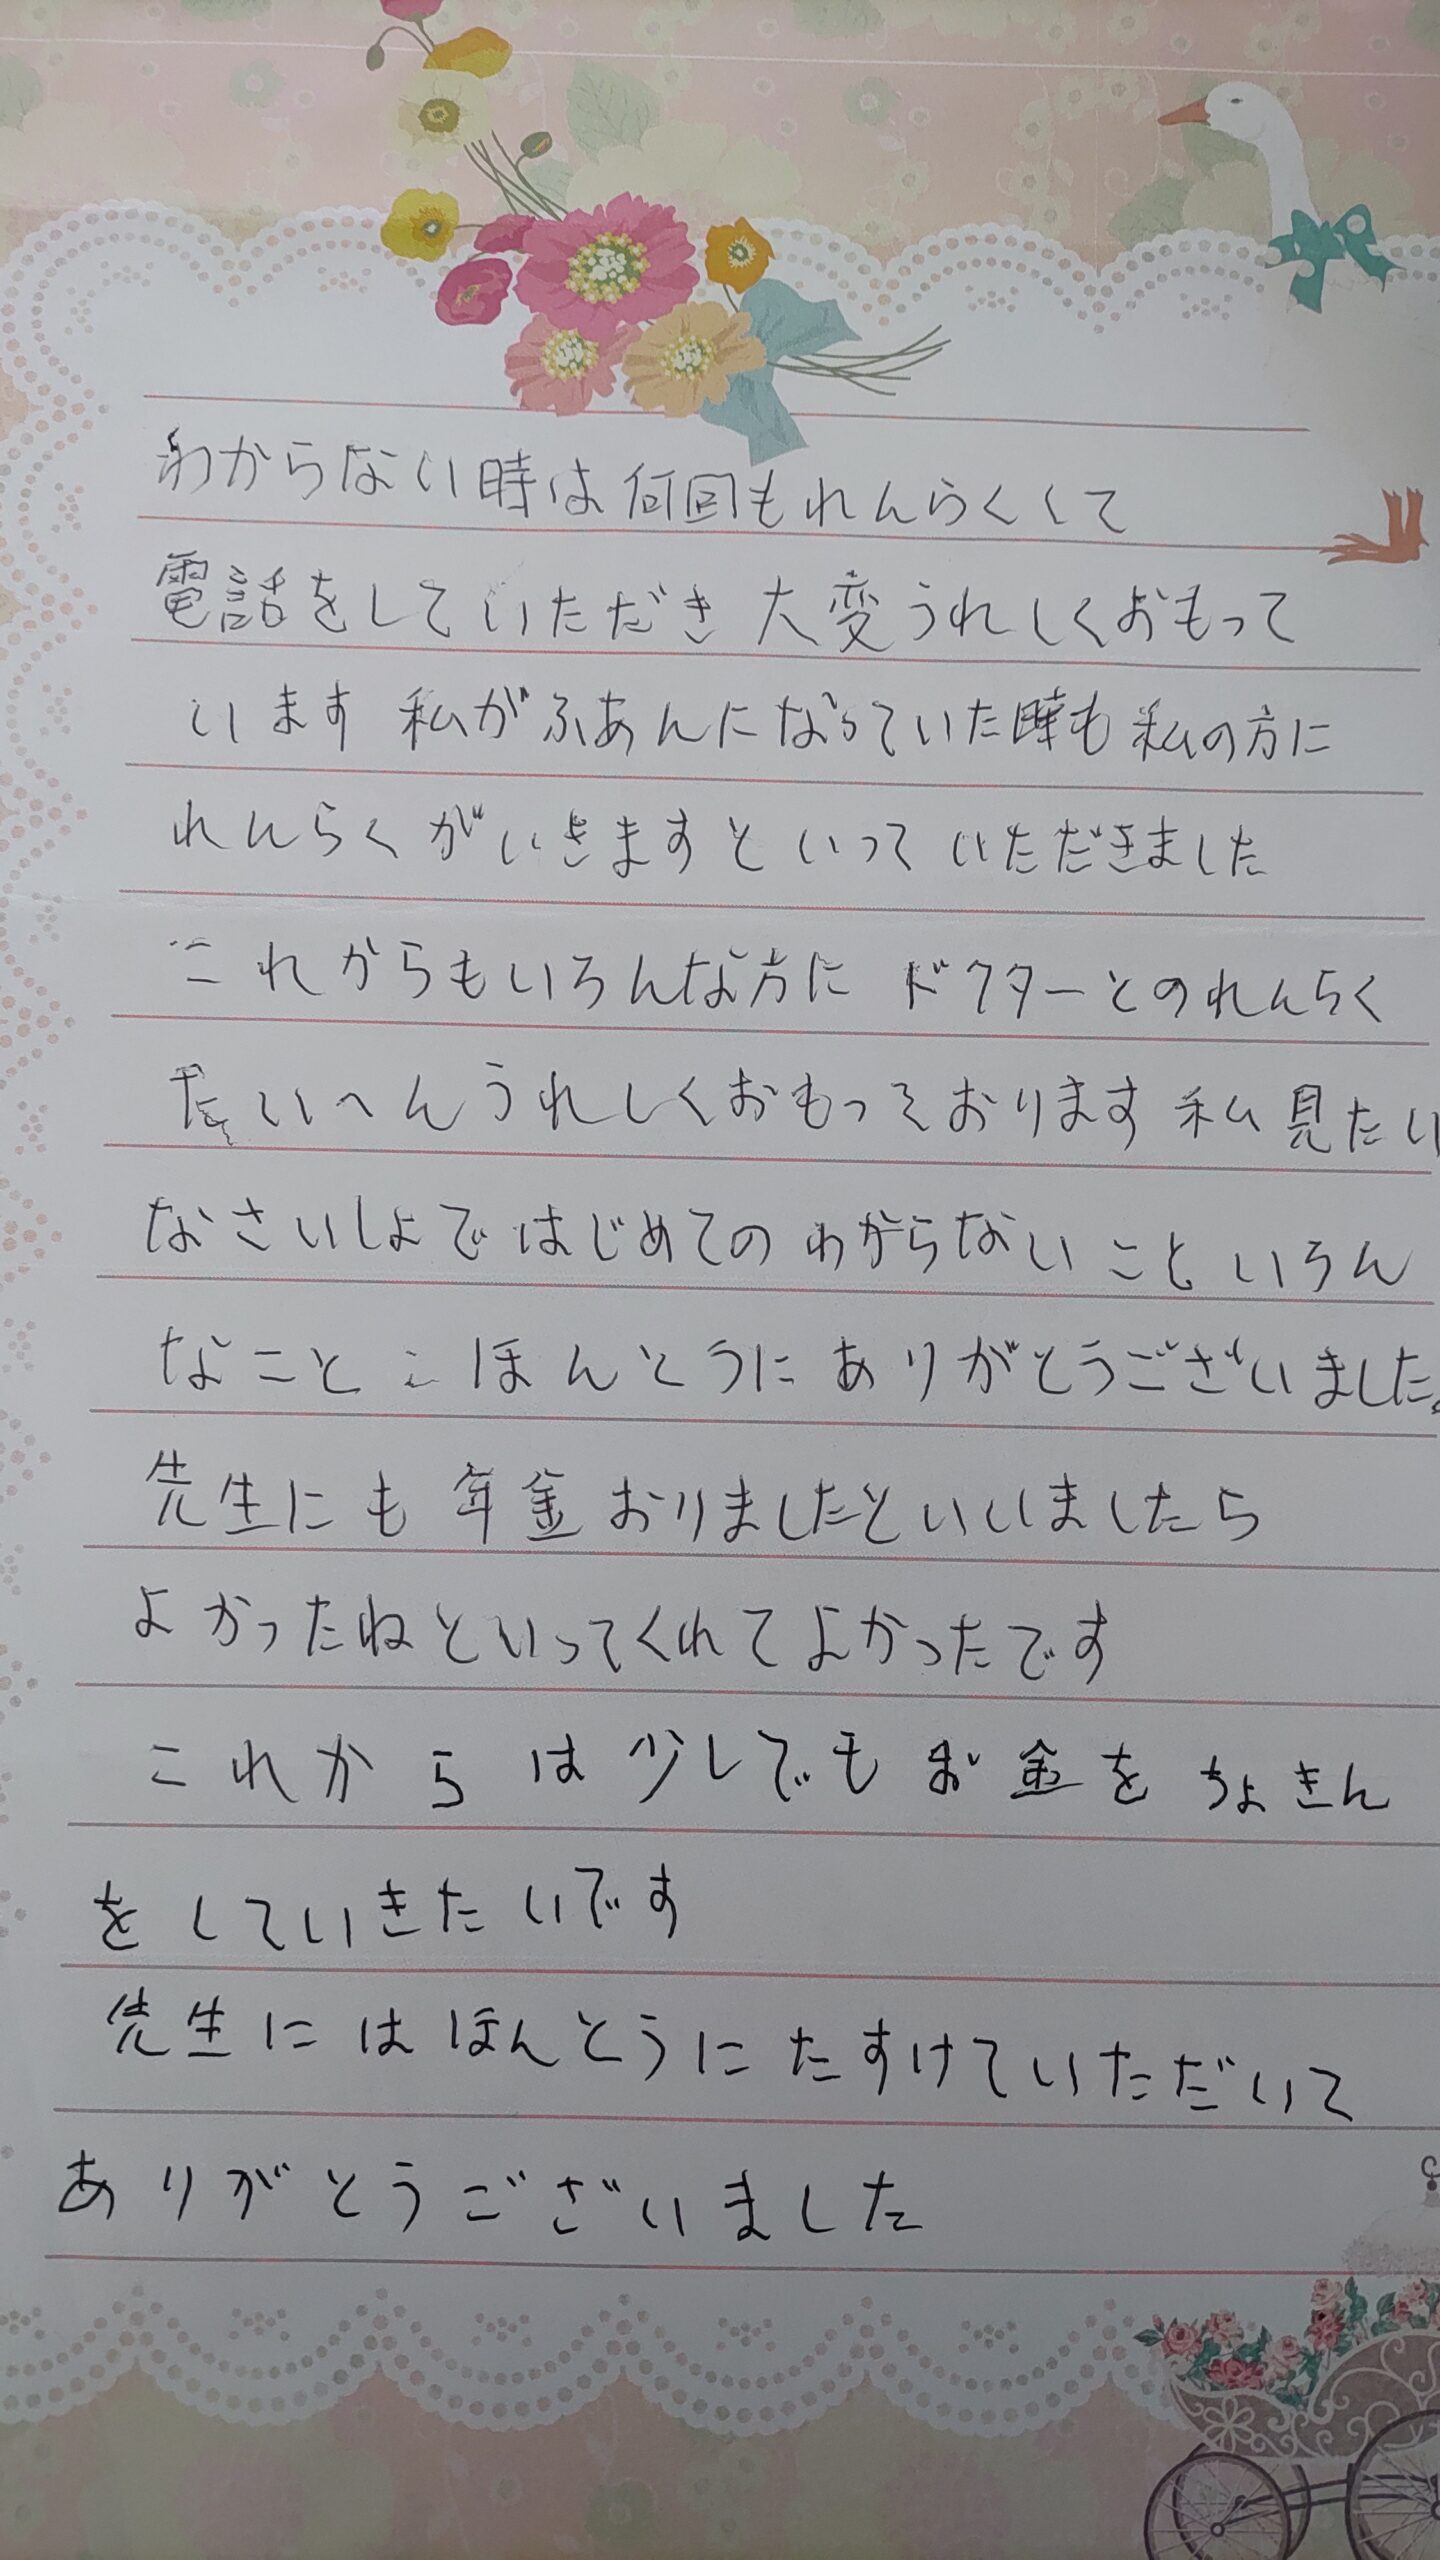 わからない時は何回もれんらくくて
電話をしていただき 大変うれしくおもって
います 私がふあんになっていた時も 私の方に
れんらくがいきますといって いただきました
これからもいろんな方に ドクターとのれんらく
たいへんうれしくおもっております 私見たい
なさいしょで はじめての わからないこと いろん
なこと ほんとうに ありがとうございました。
先生にも 年金おりましたといいましたら
よかったねといってくれてよかったです
これからは少しでもお金をちょきん
をしていきたいです
先生にはほんとうにたすけていただいて
ありがとうございました